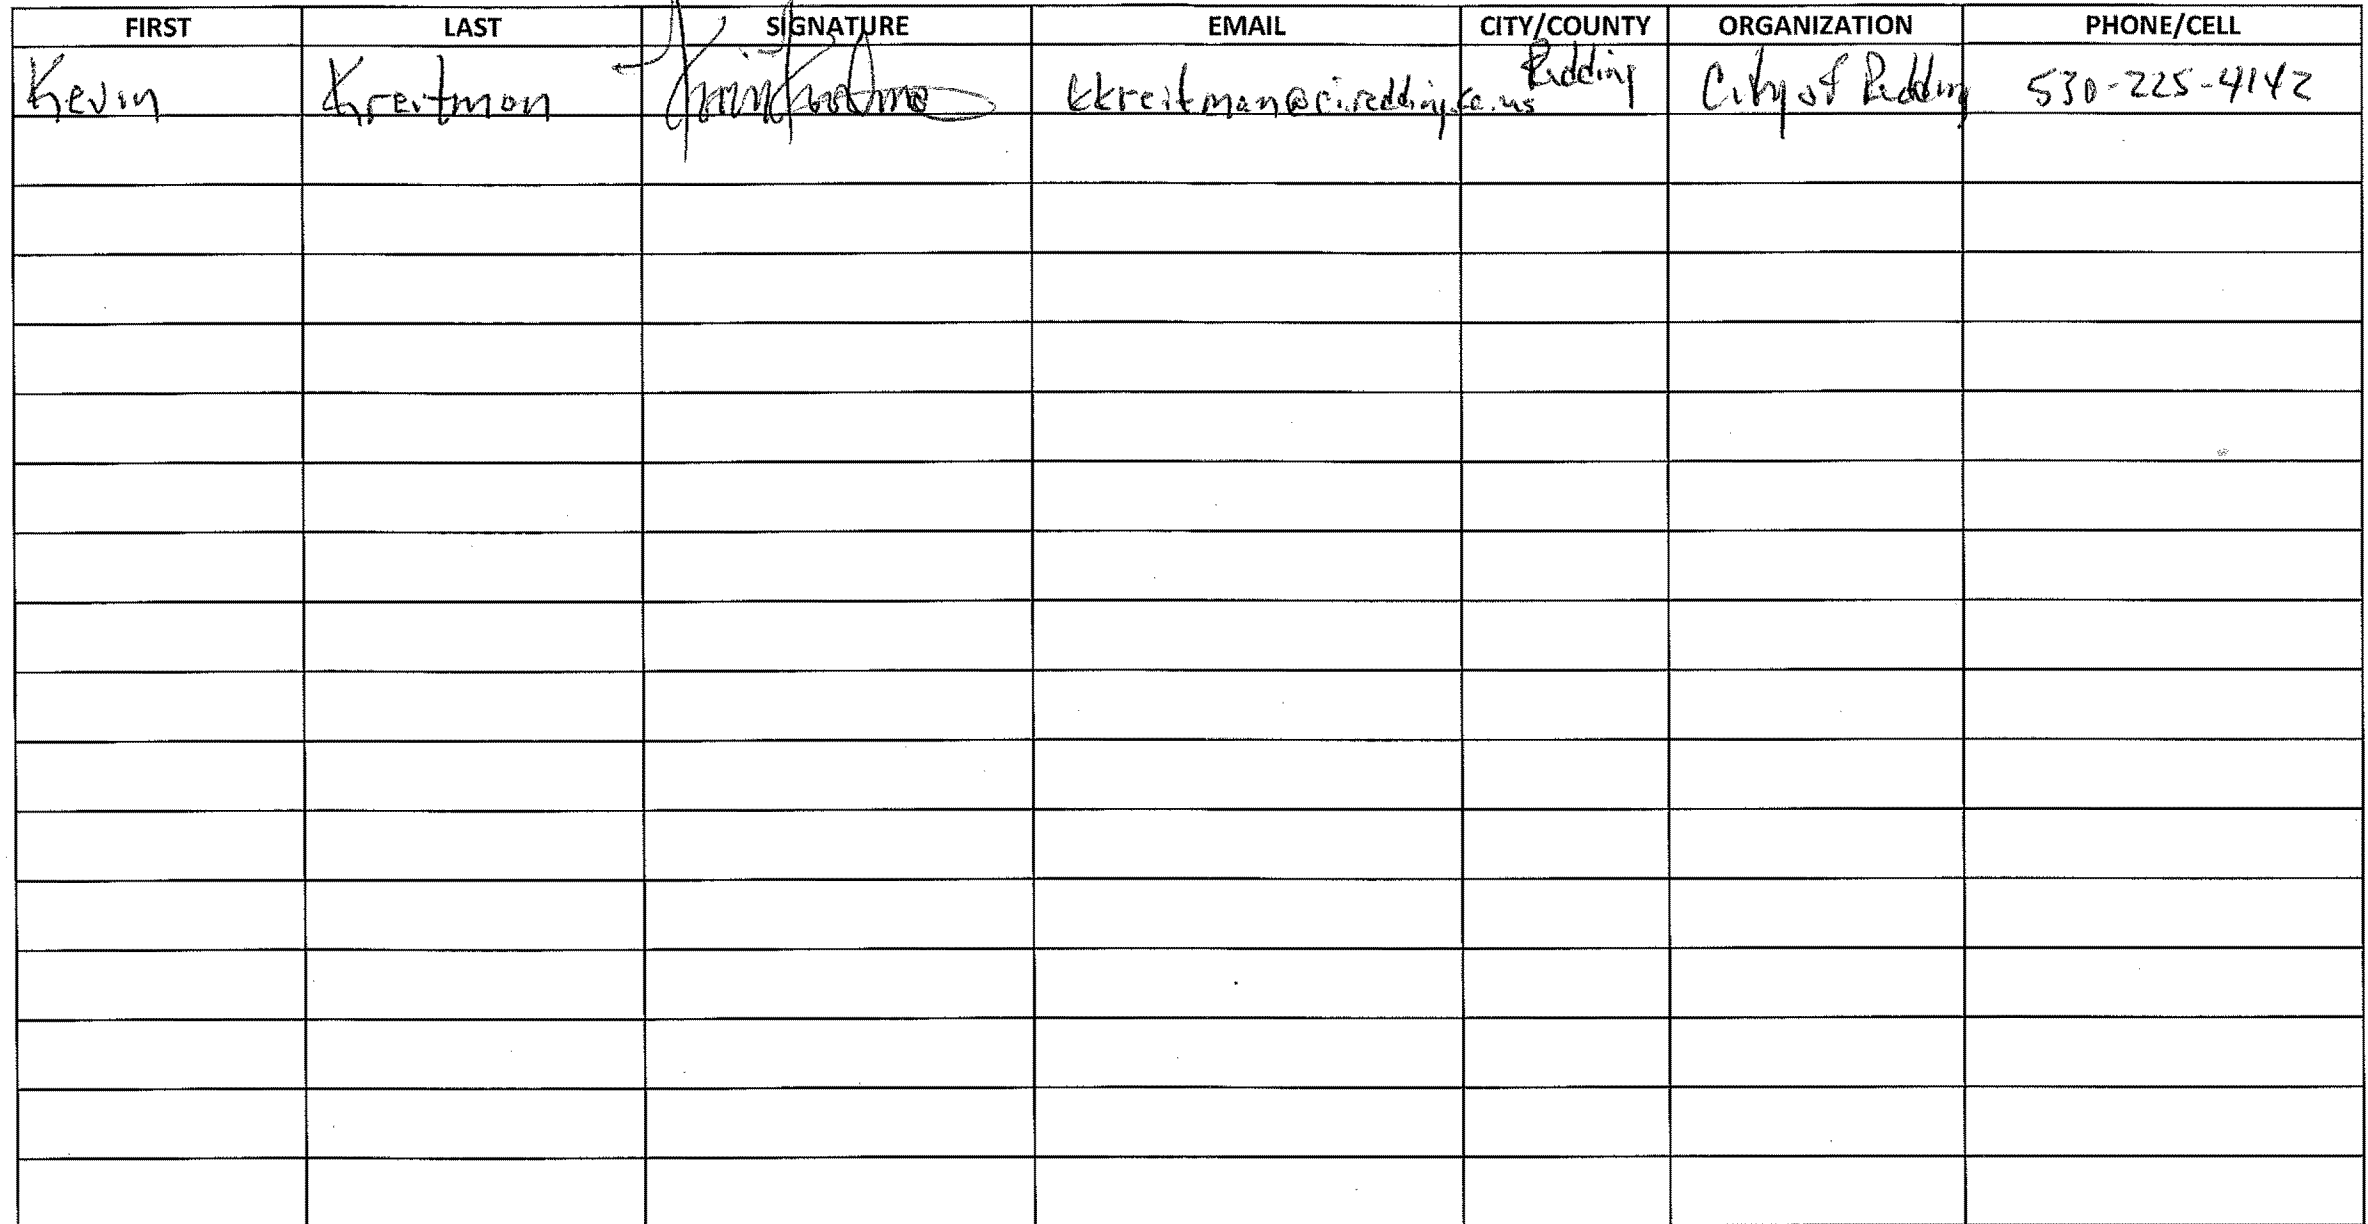 FIRST LAST SIGNATURE EMAIL CITY/COUNTY ORGANIZATION PHONE/CELL
Kevin Kreitman kkreitman@ci.redding.ca.us Redding City of Redding 530-225-4142